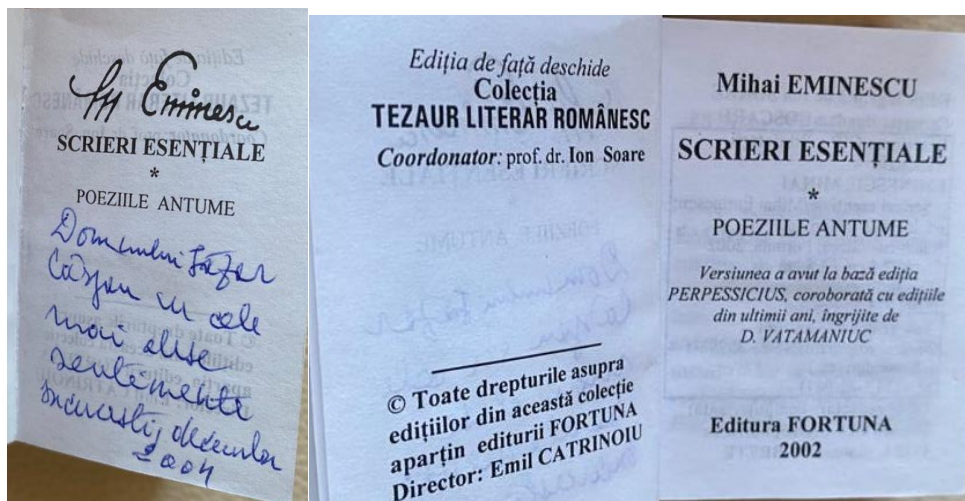 M Eminescu
SCRIERI ESENȚIALE
*
POEZIILE ANTUME
Domnului Lazăr
cu cele
mai alese
sentimente
decembrie
2004
Ediția de față deschide
Colecția
TEZAUR LITERAR ROMÂNESC
Coordonator: prof. dr. Ion Soare
© Toate drepturile asupra
edițiilor din această colecție
aparțin editurii FORTUNA
Director: Emil CATRINOIU
Mihai EMINESCU
SCRIERI ESENȚIALE
*
POEZIILE ANTUME
Versiunea a avut la bază ediția
PERPESSICIUS, coroborată cu edițiile
din ultimii ani, îngrijite de
D. VATAMANIUC
Editura FORTUNA
2002